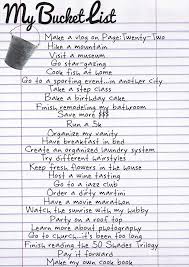 My Bucket List
Make a vlog on Page:Twenty-Two
Hike a mountain
Visit a museum
Go star-gazing
Cook fish at home
Go to a sporting event...in another city
Take a step class
Bake a birthday cake
Finish remodeling my bathroom
Save more $$$
Run a 5k
Organize my vanity
Have breakfast in bed
Create an organized laundry system
Try different hairstyles
Keep fresh flowers in the house
Host a wine tasting
Go to a jazz club
Order a dirty martini
Have a movie marathon
Watch the sunrise with my hubby
Party on a roof top
Learn more about photography
Go to church...it's been too long
Finish reading the 50 Shades Trilogy
Pay it forward
Make my own cook book